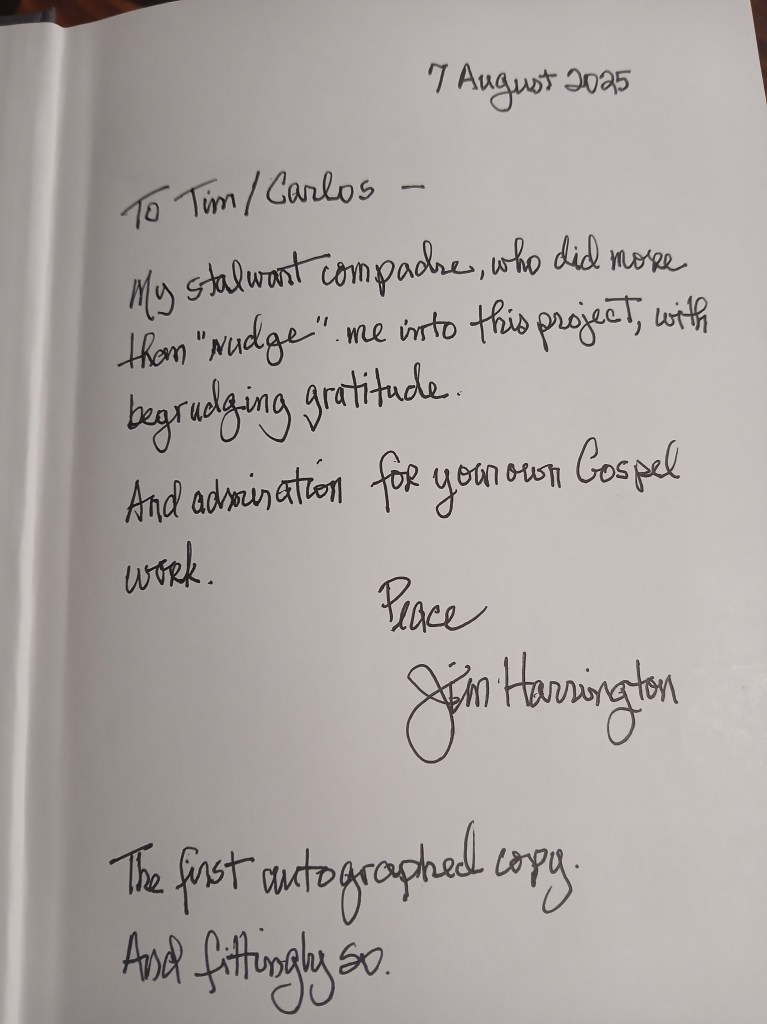 7 August 2025
To Tim/Carlos –
My stalwart compadre, who did more
than "nudge" me into this project, with
begrudging gratitude.
And admiration for your own Gospel
work.
Peace
Jim Harrington
The first autographed copy.
And fittingly so.